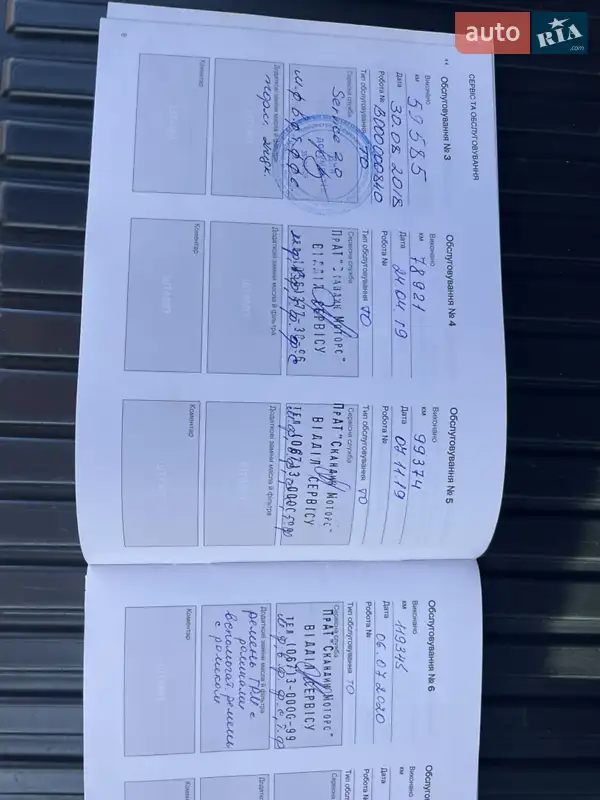 auto RIA.com
СЕРВІС ТА ОБСЛУГОВУВАННЯ
Обслуговування № 3
Виконано
км 59585
Дата 30.08.2018
Робота № B000000840
Тип обслуговування ТО
Сервісна служба
Service 3.0
Додаткові заміни масла й фільтра
Коментар
8
Обслуговування № 4
Виконано
км 78921
Дата 24.04.19
Робота №
Тип обслуговування ТО
Сервісна служба
ПрАТ "Скандик Моторс"
ВІДДІЛ СЕРВІСУ
Додаткові заміни масла й фільтра
Коментар
Обслуговування № 5
Виконано
км 99374
Дата 07.11.19
Робота №
Тип обслуговування ТО
Сервісна служба
ПрАТ "Скандик Моторс"
ВІДДІЛ СЕРВІСУ
ТЕЛ (067)3-000-
Додаткові заміни масла й фільтра
Коментар
Обслуговування № 6
Виконано
км 119345
Дата 06.07.2020
Робота №
Тип обслуговування ТО
Сервісна служба
ПрАТ "Скандик Моторс"
ВІДДІЛ СЕРВІСУ
ТЕЛ (067)3-000-99
Додаткові заміни масла й фільтра
ремень ГРМ с
роликами
вспомогат. ремень
с роликом
Коментар
Обслуговування №
Виконано
км
Дата
Робота №
Тип обсл
Сервісна